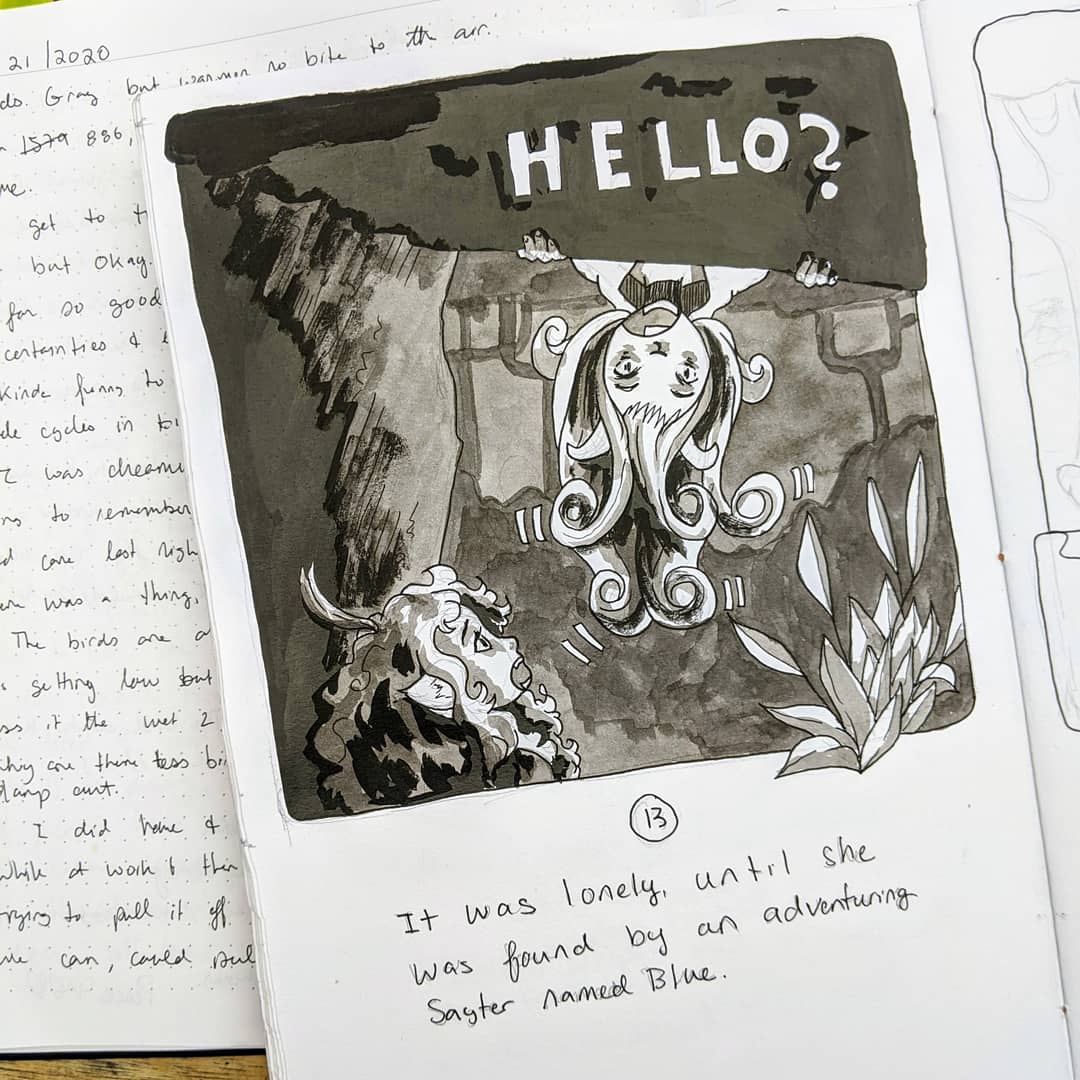 21/2020
Gray but warmer no bite to the air.
1579 886,
me.
get to
but okay.
far so good
certainties &
Kinda funny to
cycles in
I was
to remember
last
was a thing,
The birds are
setting low but
if the wet 2
are there less
damp out.
I did have &
while at work &
trying to pull it off
can, could
HELLO?
13
It was lonely, until she
was found by an adventuring
Sayter named Blue.